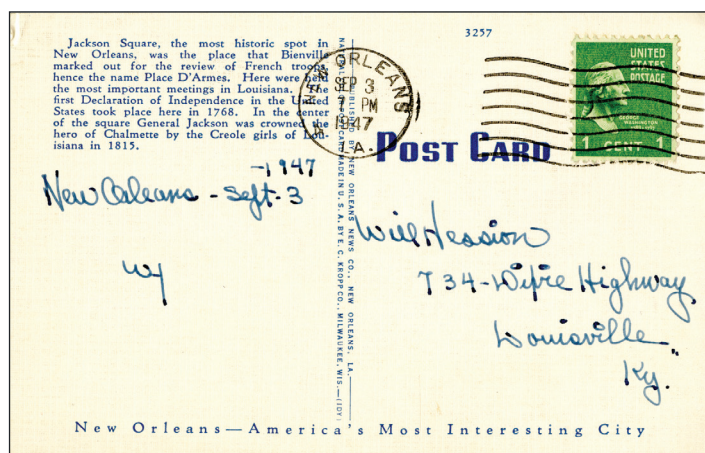 3257
Jackson Square, the most historic spot in
New Orleans, was the place that Bienville
marked out for the review of French troops
hence the name Place D'Armes. Here were held
the most important meetings in Louisiana. The
first Declaration of Independence in the United
States took place here in 1768. In the center
of the square General Jackson was crowned the
hero of Chalmette by the Creole girls of Lou-
isiana in 1815.
NEW ORLEANS
SEP 3
7 PM
1947
LA.
UNITED
STATES
POSTAGE
GEORGE
WASHINGTON
1 CENT 1
POST CARD
PUBLISHED BY NEW ORLEANS NEWS CO., NEW ORLEANS, LA.
CARD MADE IN U. S. A. BY E. C. KROPP CO., MILWAUKEE, WIS.
-1947
New Orleans - Sept. 3
Will Hession
734- Highway
Louisville
Ky.
New Orleans—America's Most Interesting City